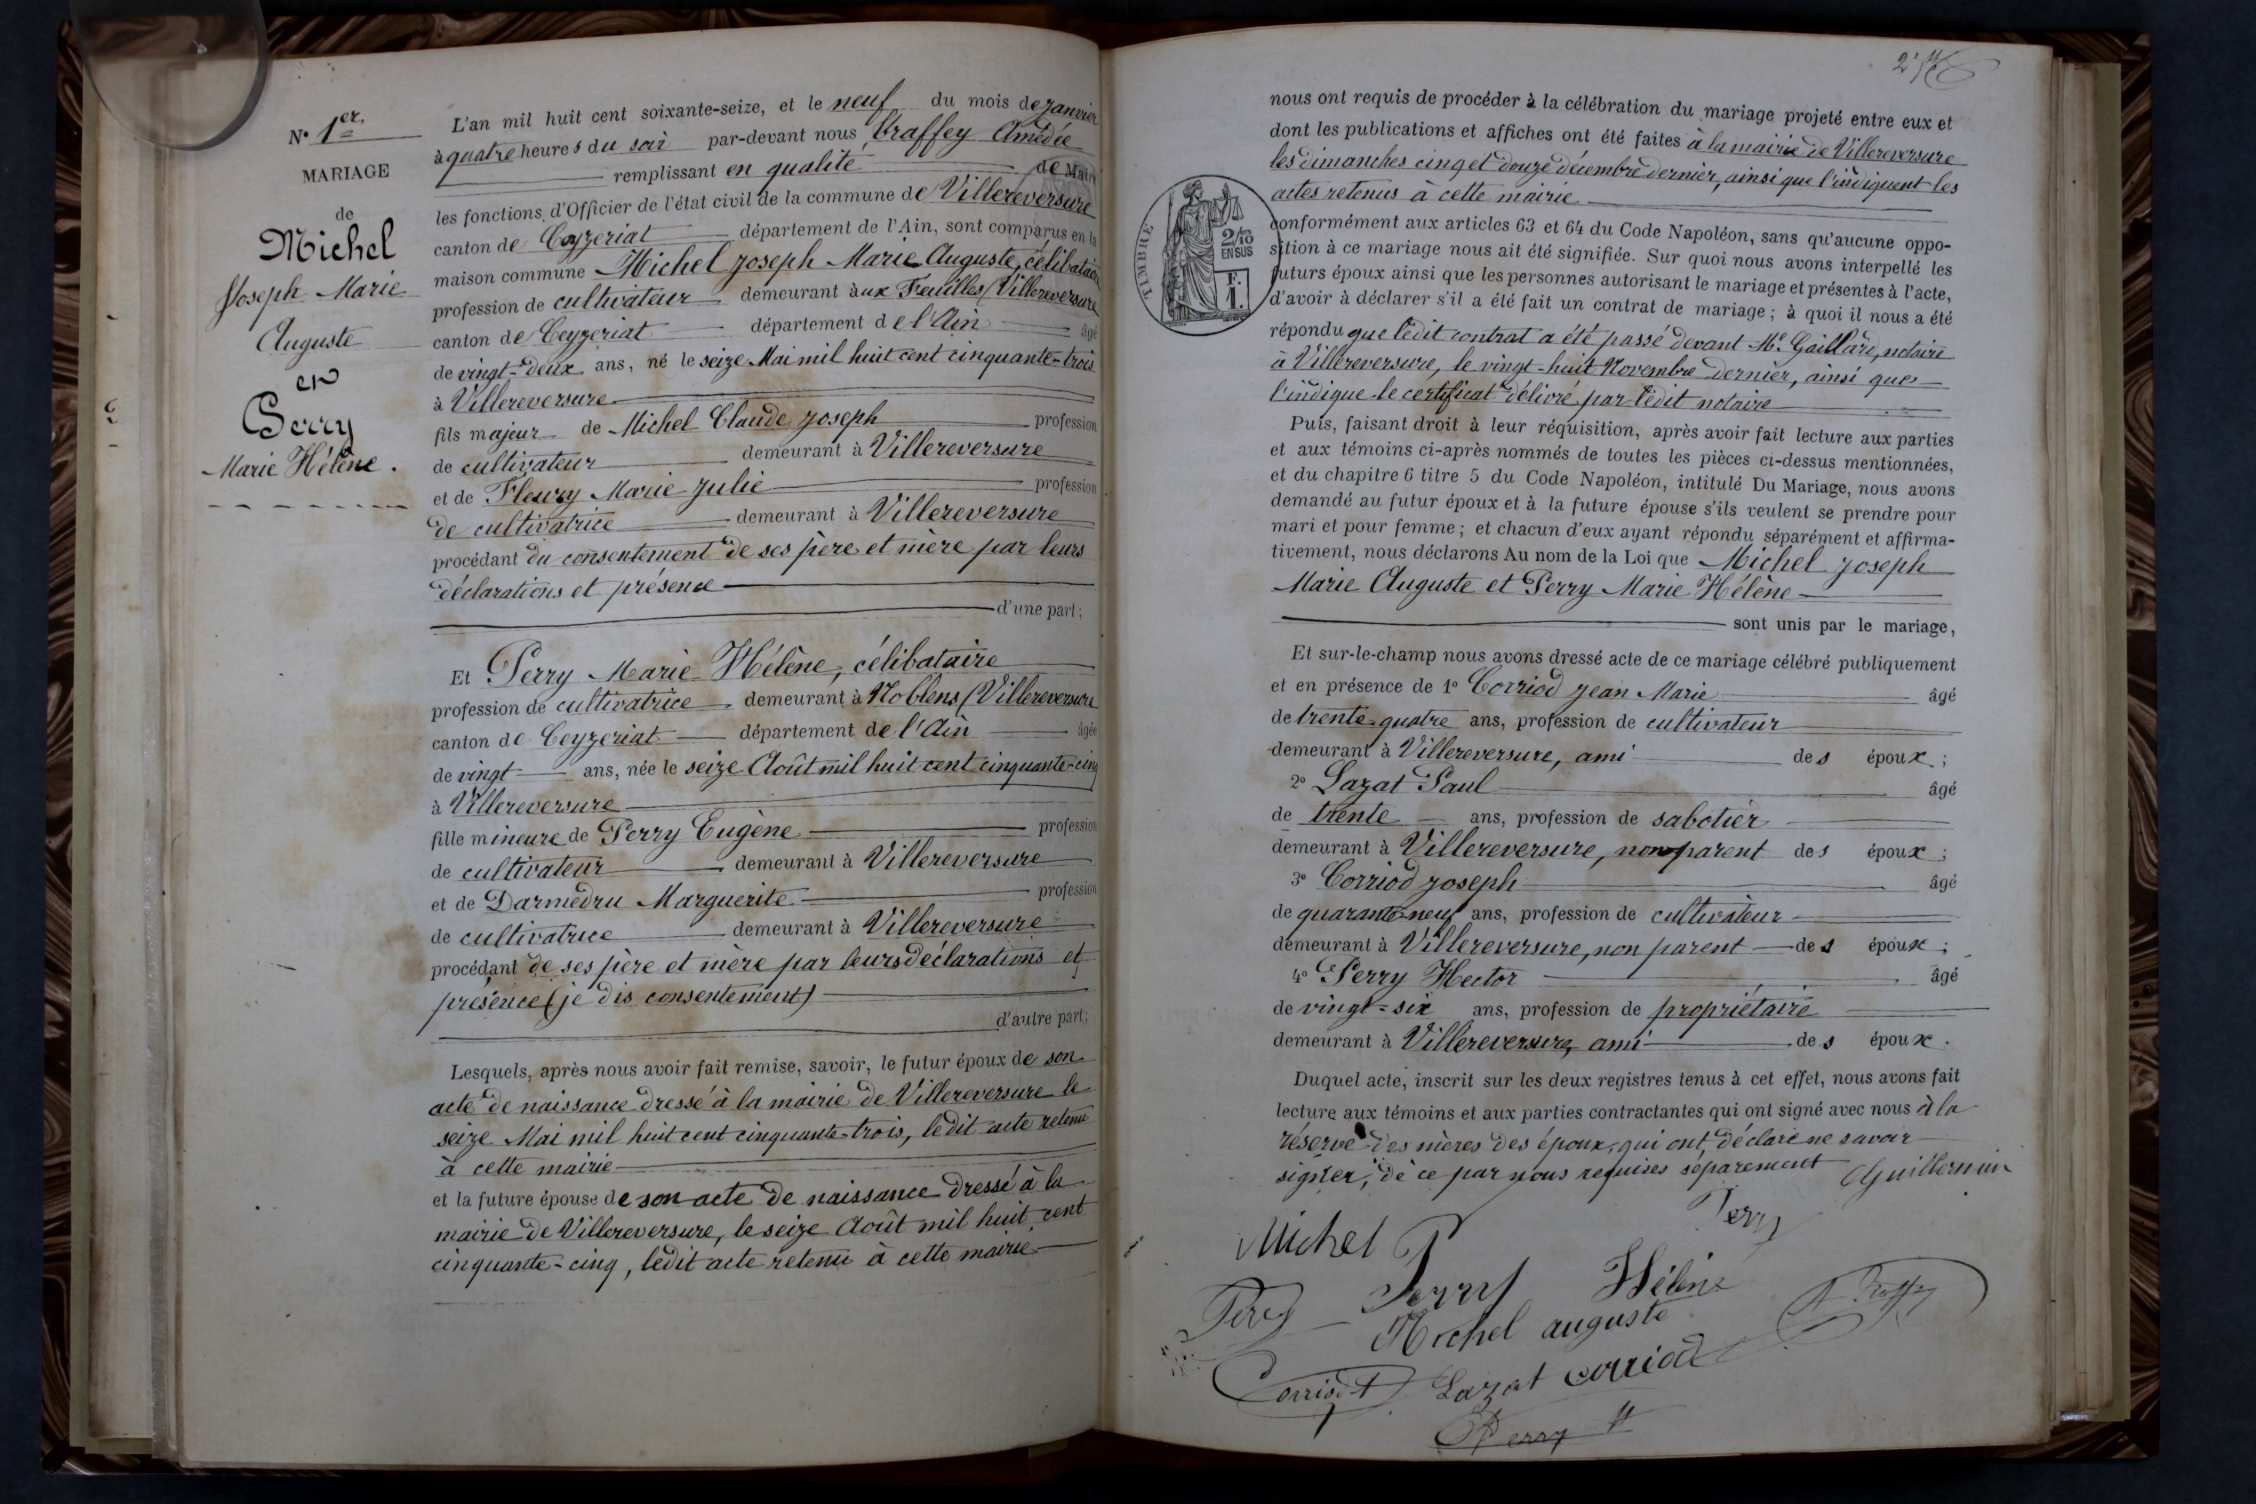 N° 1er.
MARIAGE
de
Michel
Joseph Marie
Auguste
et
Perry
Marie Hélène.
L'an mil huit cent soixante-seize, et le neuf du mois de Janvier
à quatre heures du soir par-devant nous, Graffey Amédée
remplissant en qualité de Maire
les fonctions d'Officier de l'état civil de la commune de Villereversure
canton de Ceyzeriat département de l'Ain, sont comparus en la
maison commune Michel Joseph Marie Auguste, célibataire
profession de cultivateur demeurant aux Feuilles (Villereversure
canton de Ceyzeriat département de l'Ain âgé
de vingt-deux ans, né le seize Mai mil huit cent cinquante-trois
à Villereversure
fils majeur de Michel Claude Joseph profession
de cultivateur demeurant à Villereversure
et de Fleury Marie Julie profession
de cultivatrice demeurant à Villereversure
procédant du consentement de ses père et mère par leurs
déclarations et présence
d'une part;
Et Perry Marie Hélène, célibataire
profession de cultivatrice demeurant à Noblens (Villereversure
canton de Ceyzeriat département de l'Ain âgée
de vingt ans, née le seize Août mil huit cent cinquante-cinq
à Villereversure
fille mineure de Perry Eugène profession
de cultivateur demeurant à Villereversure
et de Darmedru Marguerite profession
de cultivatrice demeurant à Villereversure
procédant de ses père et mère par leurs déclarations et
présence (je dis consentement)
d'autre part;
Lesquels, après nous avoir fait remise, savoir, le futur époux de son
acte de naissance dressé à la mairie de Villereversure le
seize Mai mil huit cent cinquante-trois, ledit acte retenu
à cette mairie
et la future épouse de son acte de naissance dressé à la
mairie de Villereversure, le seize Août mil huit cent
cinquante-cinq, ledit acte retenu à cette mairie
nous ont requis de procéder à la célébration du mariage projeté entre eux et
dont les publications et affiches ont été faites à la mairie de Villereversure
les dimanches cinq et douze décembre dernier, ainsi que l'indiquent les
actes retenus à cette mairie
TIMBRE
2/10
EN SUS
F.
1.
conformément aux articles 63 et 64 du Code Napoléon, sans qu'aucune oppo-
sition à ce mariage nous ait été signifiée. Sur quoi nous avons interpellé les
futurs époux ainsi que les personnes autorisant le mariage et présentes à l'acte,
d'avoir à déclarer s'il a été fait un contrat de mariage; à quoi il nous a été
répondu que ledit contrat a été passé devant Me. Gaillard, notaire
à Villereversure, le vingt-huit Novembre dernier, ainsi que
l'indique le certificat délivré par ledit notaire
Puis, faisant droit à leur réquisition, après avoir fait lecture aux parties
et aux témoins ci-après nommés de toutes les pièces ci-dessus mentionnées,
et du chapitre 6 titre 5 du Code Napoléon, intitulé Du Mariage, nous avons
demandé au futur époux et à la future épouse s'ils veulent se prendre pour
mari et pour femme; et chacun d'eux ayant répondu séparément et affirma-
tivement, nous déclarons Au nom de la Loi que Michel Joseph
Marie Auguste et Perry Marie Hélène
sont unis par le mariage,
Et sur-le-champ nous avons dressé acte de ce mariage célébré publiquement
et en présence de 1° Corriod Jean Marie âgé
de trente-quatre ans, profession de cultivateur
demeurant à Villereversure, ami des époux;
2° Lazat Paul âgé
de trente ans, profession de sabotier
demeurant à Villereversure, non parent des époux;
3° Corriod Joseph âgé
de quarante-neuf ans, profession de cultivateur
demeurant à Villereversure, non parent des époux;
4° Perry Hector âgé
de vingt-six ans, profession de propriétaire
demeurant à Villereversure, ami des époux.
Duquel acte, inscrit sur les deux registres tenus à cet effet, nous avons fait
lecture aux témoins et aux parties contractantes qui ont signé avec nous à la
réserve des mères des époux, qui ont déclaré ne savoir
signer, de ce par nous requises séparement Guillermin
Perry
Michel
Perry Perry Hélène
Michel auguste
Corriod Lazat corriod
Perry H